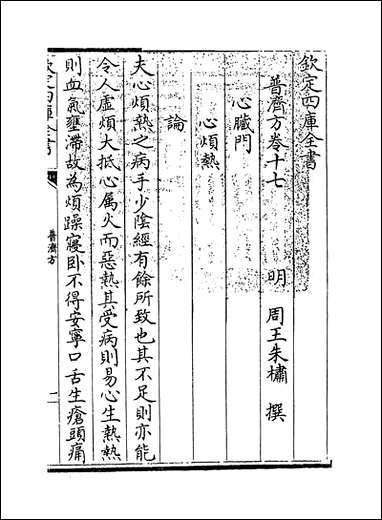 欽定四庫全書
普濟方卷十七
明 周王朱橚 撰
心臟門
心煩熱
論
夫心煩熱之病手少陰經有餘所致也其不足則亦能
令人虛煩大抵心屬火而惡熱其受病則易心生熱熱
則血氣壅滯故為煩躁寢卧不得安寧口舌生瘡頭痛
欽定四庫全書
普濟方